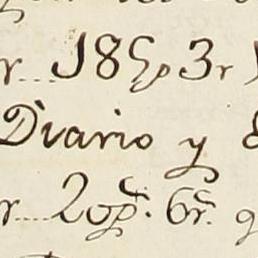 r....185p 3r
Diario y
r....20p. 6r.